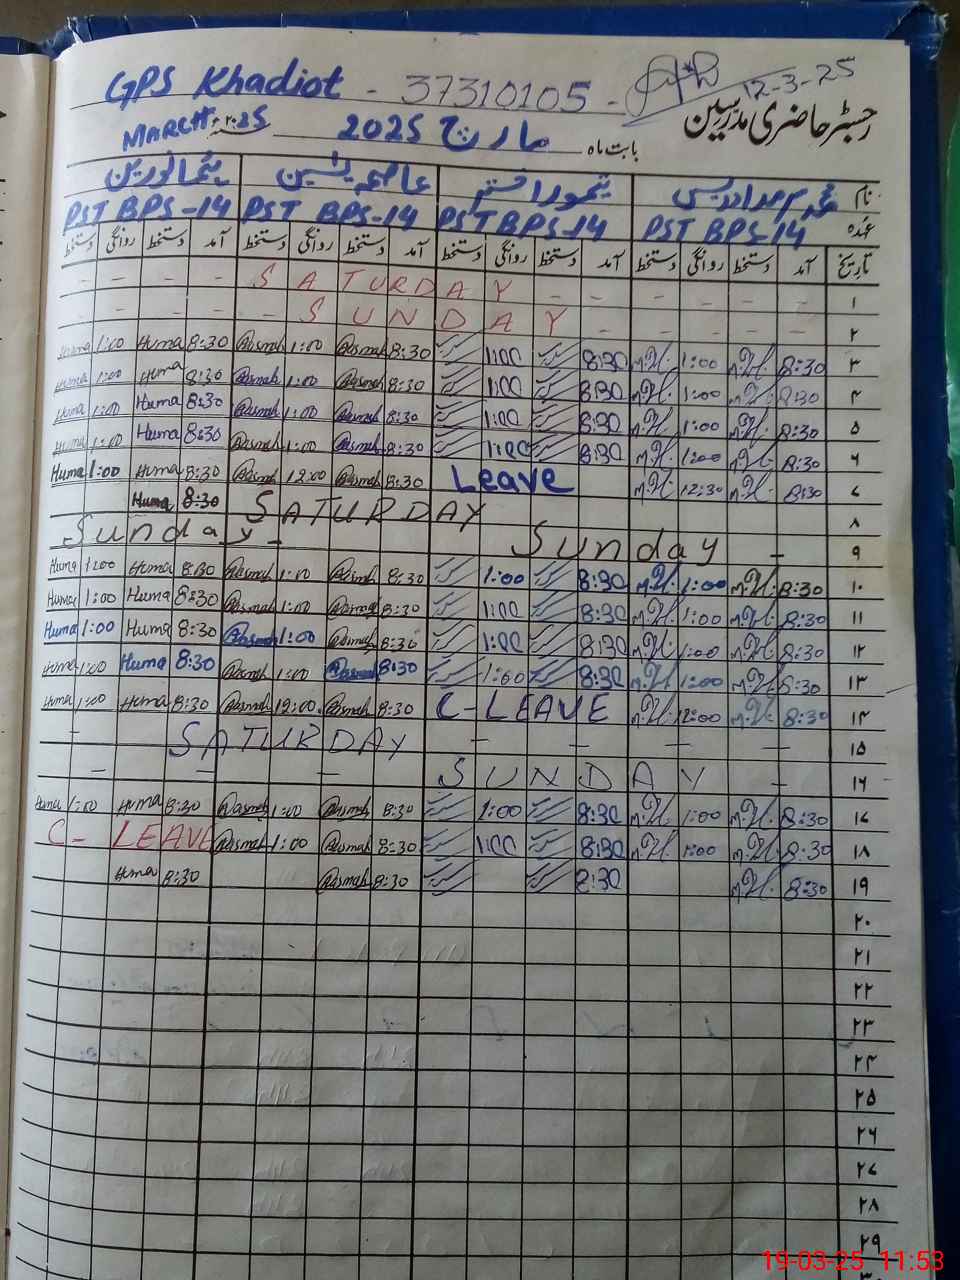 GPS Khadiot - 37310105 - 12-3-25
رجسٹر حاضری مدرسین
MARCH, 2025 مارچ 2025 بابت ماہ
نام
PST BPS-14 PST BPS-14 PST BPS-14 PST BPS-14 عہدہ
تاریخ آمد دستخط روانگی دستخط آمد دستخط روانگی دستخط آمد دستخط روانگی دستخط آمد دستخط روانگی دستخط
- - - SATURDAY - - - - - - ۱
- - - - SUNDAY - - - - - ۲
Huma 1:00 Huma 8:30 Aasmah 1:00 Aasmah 8:30 1:00 8:30 M.H. 1:00 M.H. 8:30 ۳
Huma 1:00 Huma 8:30 Aasmah 1:00 Aasmah 8:30 1:00 8:30 M.H. 1:00 M.H. 8:30 ۴
Huma 1:00 Huma 8:30 Aasmah 1:00 Aasmah 8:30 1:00 8:30 M.H. 1:00 M.H. 8:30 ۵
Huma 1:00 Huma 8:30 Aasmah 1:00 Aasmah 8:30 1:00 8:30 M.H. 1:00 M.H. 8:30 ۶
Huma 1:00 Huma 8:30 Aasmah 12:00 Aasmah 8:30 Leave M.H. 12:30 M.H. 8:30 ۷
Huma 8:30 SATURDAY ۸
Sunday - Sunday - ۹
Huma 1:00 Huma 8:30 Aasmah 1:00 Aasmah 8:30 1:00 8:30 M.H. 1:00 M.H. 8:30 ۱۰
Huma 1:00 Huma 8:30 Aasmah 1:00 Aasmah 8:30 1:00 8:30 M.H. 1:00 M.H. 8:30 ۱۱
Huma 1:00 Huma 8:30 Aasmah 1:00 Aasmah 8:30 1:00 8:30 M.H. 1:00 M.H. 8:30 ۱۲
Huma 1:00 Huma 8:30 Aasmah 1:00 Aasmah 8:30 1:00 8:30 M.H. 1:00 M.H. 8:30 ۱۳
Huma 1:00 Huma 8:30 Aasmah 12:00 Aasmah 8:30 C-LEAVE M.H. 12:00 M.H. 8:30 ۱۴
- SATURDAY - - - - ۱۵
- - - SUNDAY - ۱۶
Huma 1:00 Huma 8:30 Aasmah 1:00 Aasmah 8:30 1:00 8:30 M.H. 1:00 M.H. 8:30 ۱۷
C-LEAVE Aasmah 1:00 Aasmah 8:30 1:00 8:30 M.H. 1:00 M.H. 8:30 ۱۸
Huma 8:30 Aasmah 8:30 8:30 M.H. 8:30 ۱۹
۲۰
۲۱
۲۲
۲۳
۲۴
۲۵
۲۶
۲۷
۲۸
۲۹
19-03-25 11:53